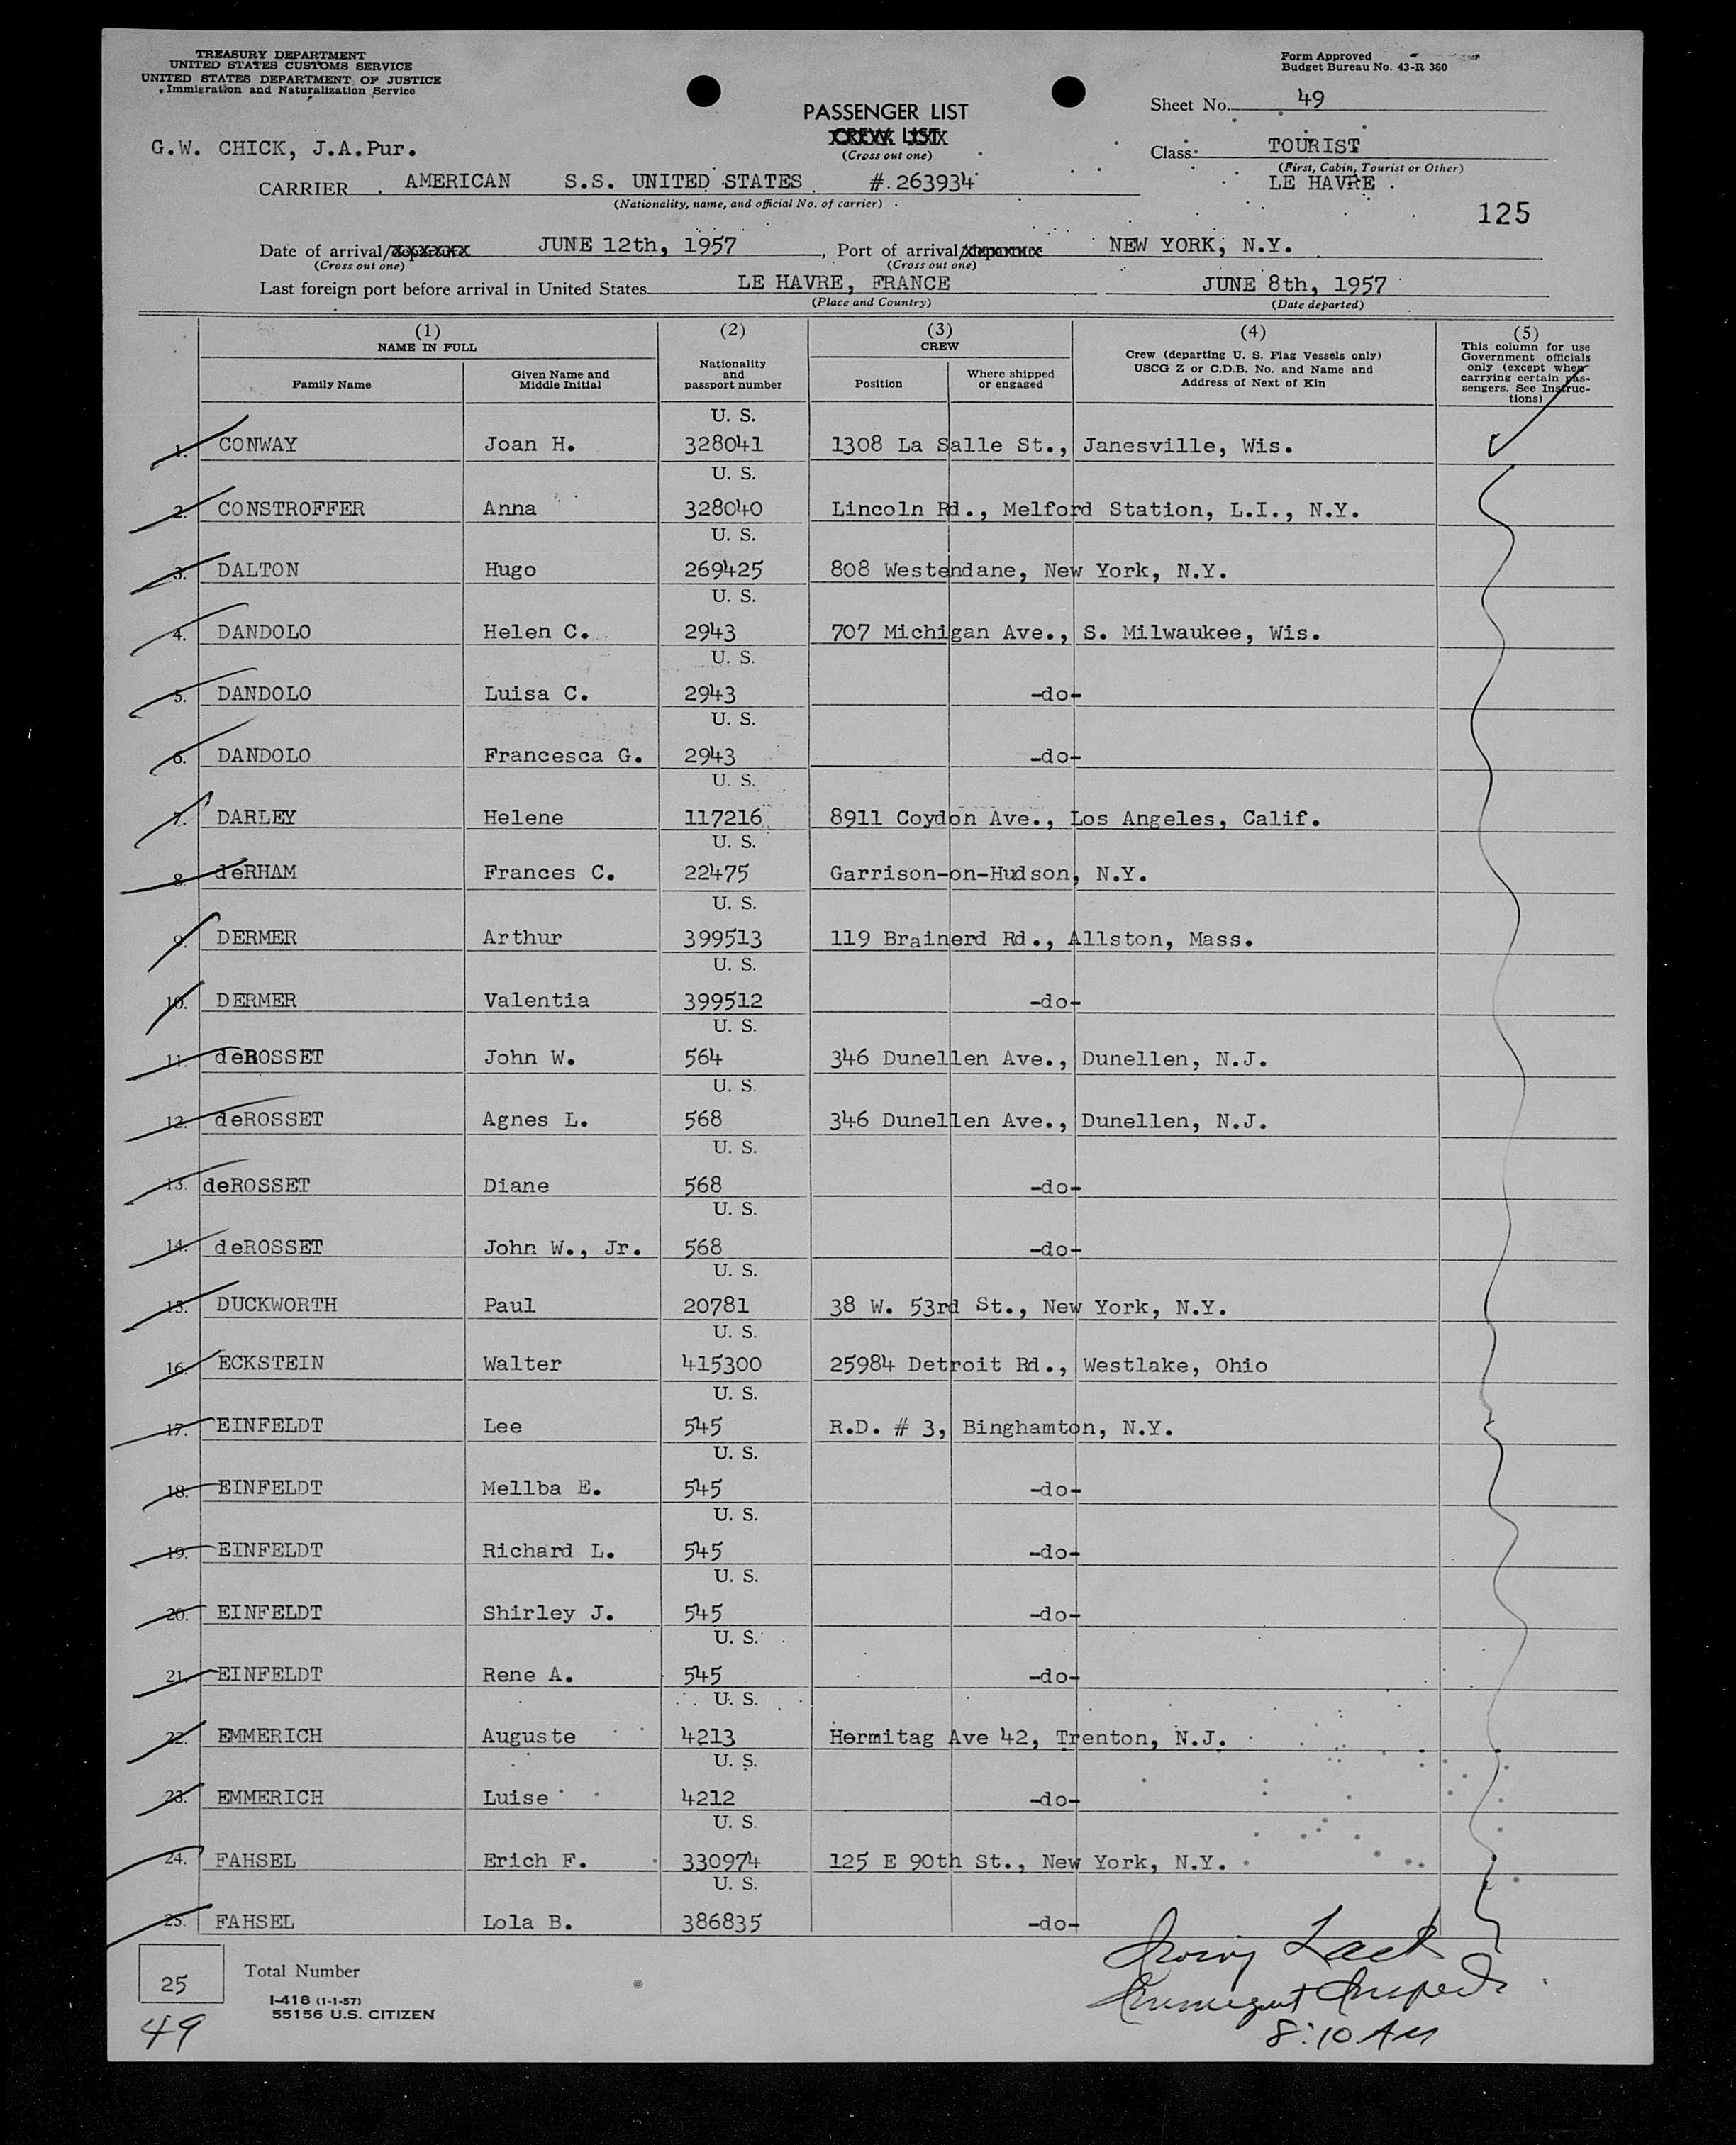 TREASURY DEPARTMENT
UNITED STATES CUSTOMS SERVICE
UNITED STATES DEPARTMENT OF JUSTICE
Immigration and Naturalization Service
Form Approved
Budget Bureau No. 43-R 380
Sheet No. 49
PASSENGER LIST
CREW LIST
(Cross out one)
G.W. CHICK, J.A.Pur.
Class TOURIST
(First, Cabin, Tourist or Other)
LE HAVRE
CARRIER AMERICAN S.S. UNITED STATES #.263934
(Nationality, name, and official No. of carrier)
125
Date of arrival/departure JUNE 12th, 1957, Port of arrival/departure NEW YORK, N.Y.
(Cross out one) (Cross out one)
Last foreign port before arrival in United States LE HAVRE, FRANCE JUNE 8th, 1957
(Place and Country) (Date departed)
(1) (2) (3) (4) (5)
NAME IN FULL
Family Name
Given Name and
Middle Initial
Nationality
and
passport number
CREW
Position
Where shipped
or engaged
Crew (departing U. S. Flag Vessels only)
USCG Z or C.D.B. No. and Name and
Address of Next of Kin
This column for use
Government officials
only (except when
carrying certain pas-
sengers. See Instruc-
tions)
U. S.
1. CONWAY Joan H. 328041 1308 La Salle St., Janesville, Wis.
U. S.
2. CONSTROFFER Anna 328040 Lincoln Rd., Melford Station, L.I., N.Y.
U. S.
3. DALTON Hugo 269425 808 Westendane, New York, N.Y.
U. S.
4. DANDOLO Helen C. 2943 707 Michigan Ave., S. Milwaukee, Wis.
U. S.
5. DANDOLO Luisa C. 2943 -do-
U. S.
6. DANDOLO Francesca G. 2943 -do-
U. S.
7. DARLEY Helene 117216 8911 Coydon Ave., Los Angeles, Calif.
U. S.
8. deRHAM Frances C. 22475 Garrison-on-Hudson, N.Y.
U. S.
9. DERMER Arthur 399513 119 Brainerd Rd., Allston, Mass.
U. S.
10. DERMER Valentia 399512 -do-
U. S.
11. deROSSET John W. 564 346 Dunellen Ave., Dunellen, N.J.
U. S.
12. deROSSET Agnes L. 568 346 Dunellen Ave., Dunellen, N.J.
U. S.
13. deROSSET Diane 568 -do-
U. S.
14. deROSSET John W., Jr. 568 -do-
U. S.
15. DUCKWORTH Paul 20781 38 W. 53rd St., New York, N.Y.
U. S.
16. ECKSTEIN Walter 415300 25984 Detroit Rd., Westlake, Ohio
U. S.
17. EINFELDT Lee 545 R.D. # 3, Binghamton, N.Y.
U. S.
18. EINFELDT Mellba E. 545 -do-
U. S.
19. EINFELDT Richard L. 545 -do-
U. S.
20. EINFELDT Shirley J. 545 -do-
U. S.
21. EINFELDT Rene A. 545 -do-
U. S.
22. EMMERICH Auguste 4213 Hermitag Ave 42, Trenton, N.J.
U. S.
23. EMMERICH Luise 4212 -do-
U. S.
24. FAHSEL Erich F. 330974 125 E 90th St., New York, N.Y.
U. S.
25. FAHSEL Lola B. 386835 -do-
25 Total Number
I-418 (1-1-57)
55156 U.S. CITIZEN
49
8:10 AM